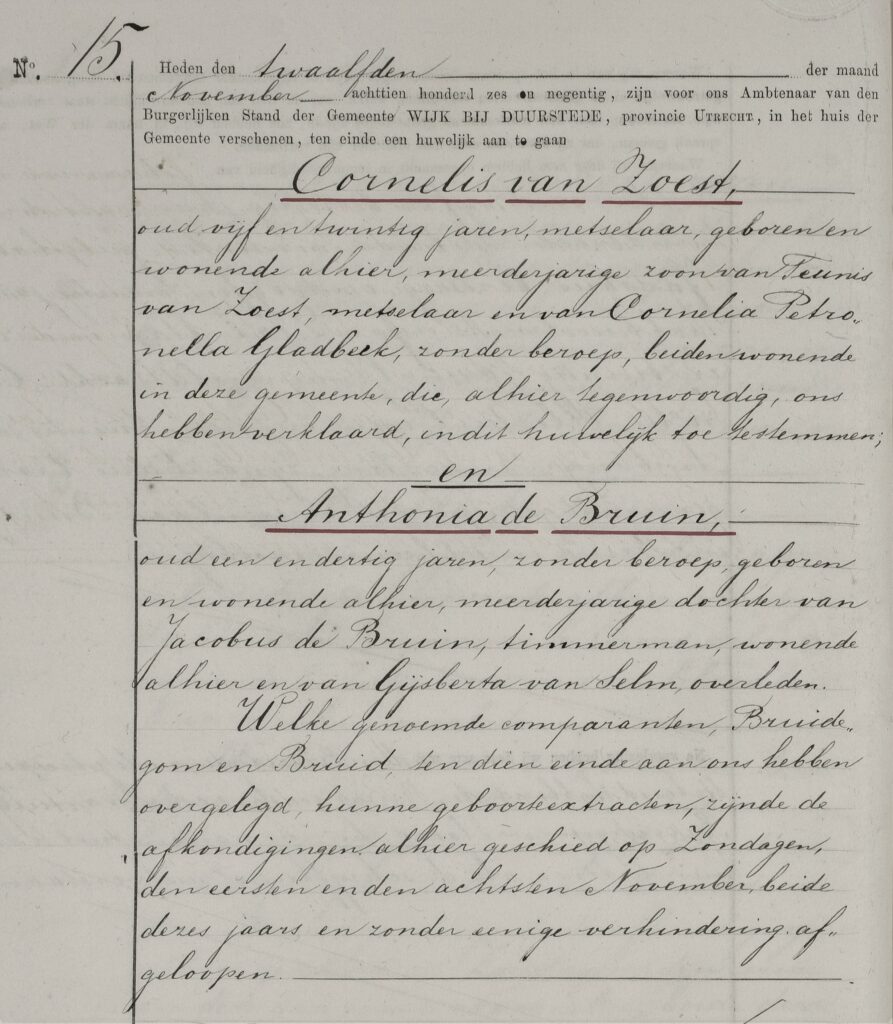 No. 15.
Heden den twaalfden der maand
November achttien honderd zes en negentig, zijn voor ons Ambtenaar van den
Burgerlijken Stand der Gemeente WIJK BIJ DUURSTEDE, provincie UTRECHT, in het huis der
Gemeente verschenen, ten einde een huwelijk aan te gaan
Cornelis van Zoest,
oud vijf en twintig jaren, metselaar, geboren en
wonende alhier, meerderjarige zoon van Teunis
van Zoest, metselaar en van Cornelia Petro„
nella Gladbeek, zonder beroep, beiden wonende
in deze gemeente, die, alhier tegenwoordig, ons
hebben verklaard, in dit huwelijk toe te stemmen;
en
Anthonia de Bruin,
oud een en dertig jaren, zonder beroep, geboren
en wonende alhier, meerderjarige dochter van
Jacobus de Bruin, timmerman, wonende
alhier en van Gijsberta van Selm, overleden.
Welke genoemde comparanten, Bruide„
gom en Bruid, ten dien einde aan ons hebben
overgelegd, hunne geboorteextracten, zijnde de
afkondigingen alhier geschied op Zondagen,
den eersten en den achtsten November, beide
dezes jaars en zonder eenige verhindering af„
geloopen.